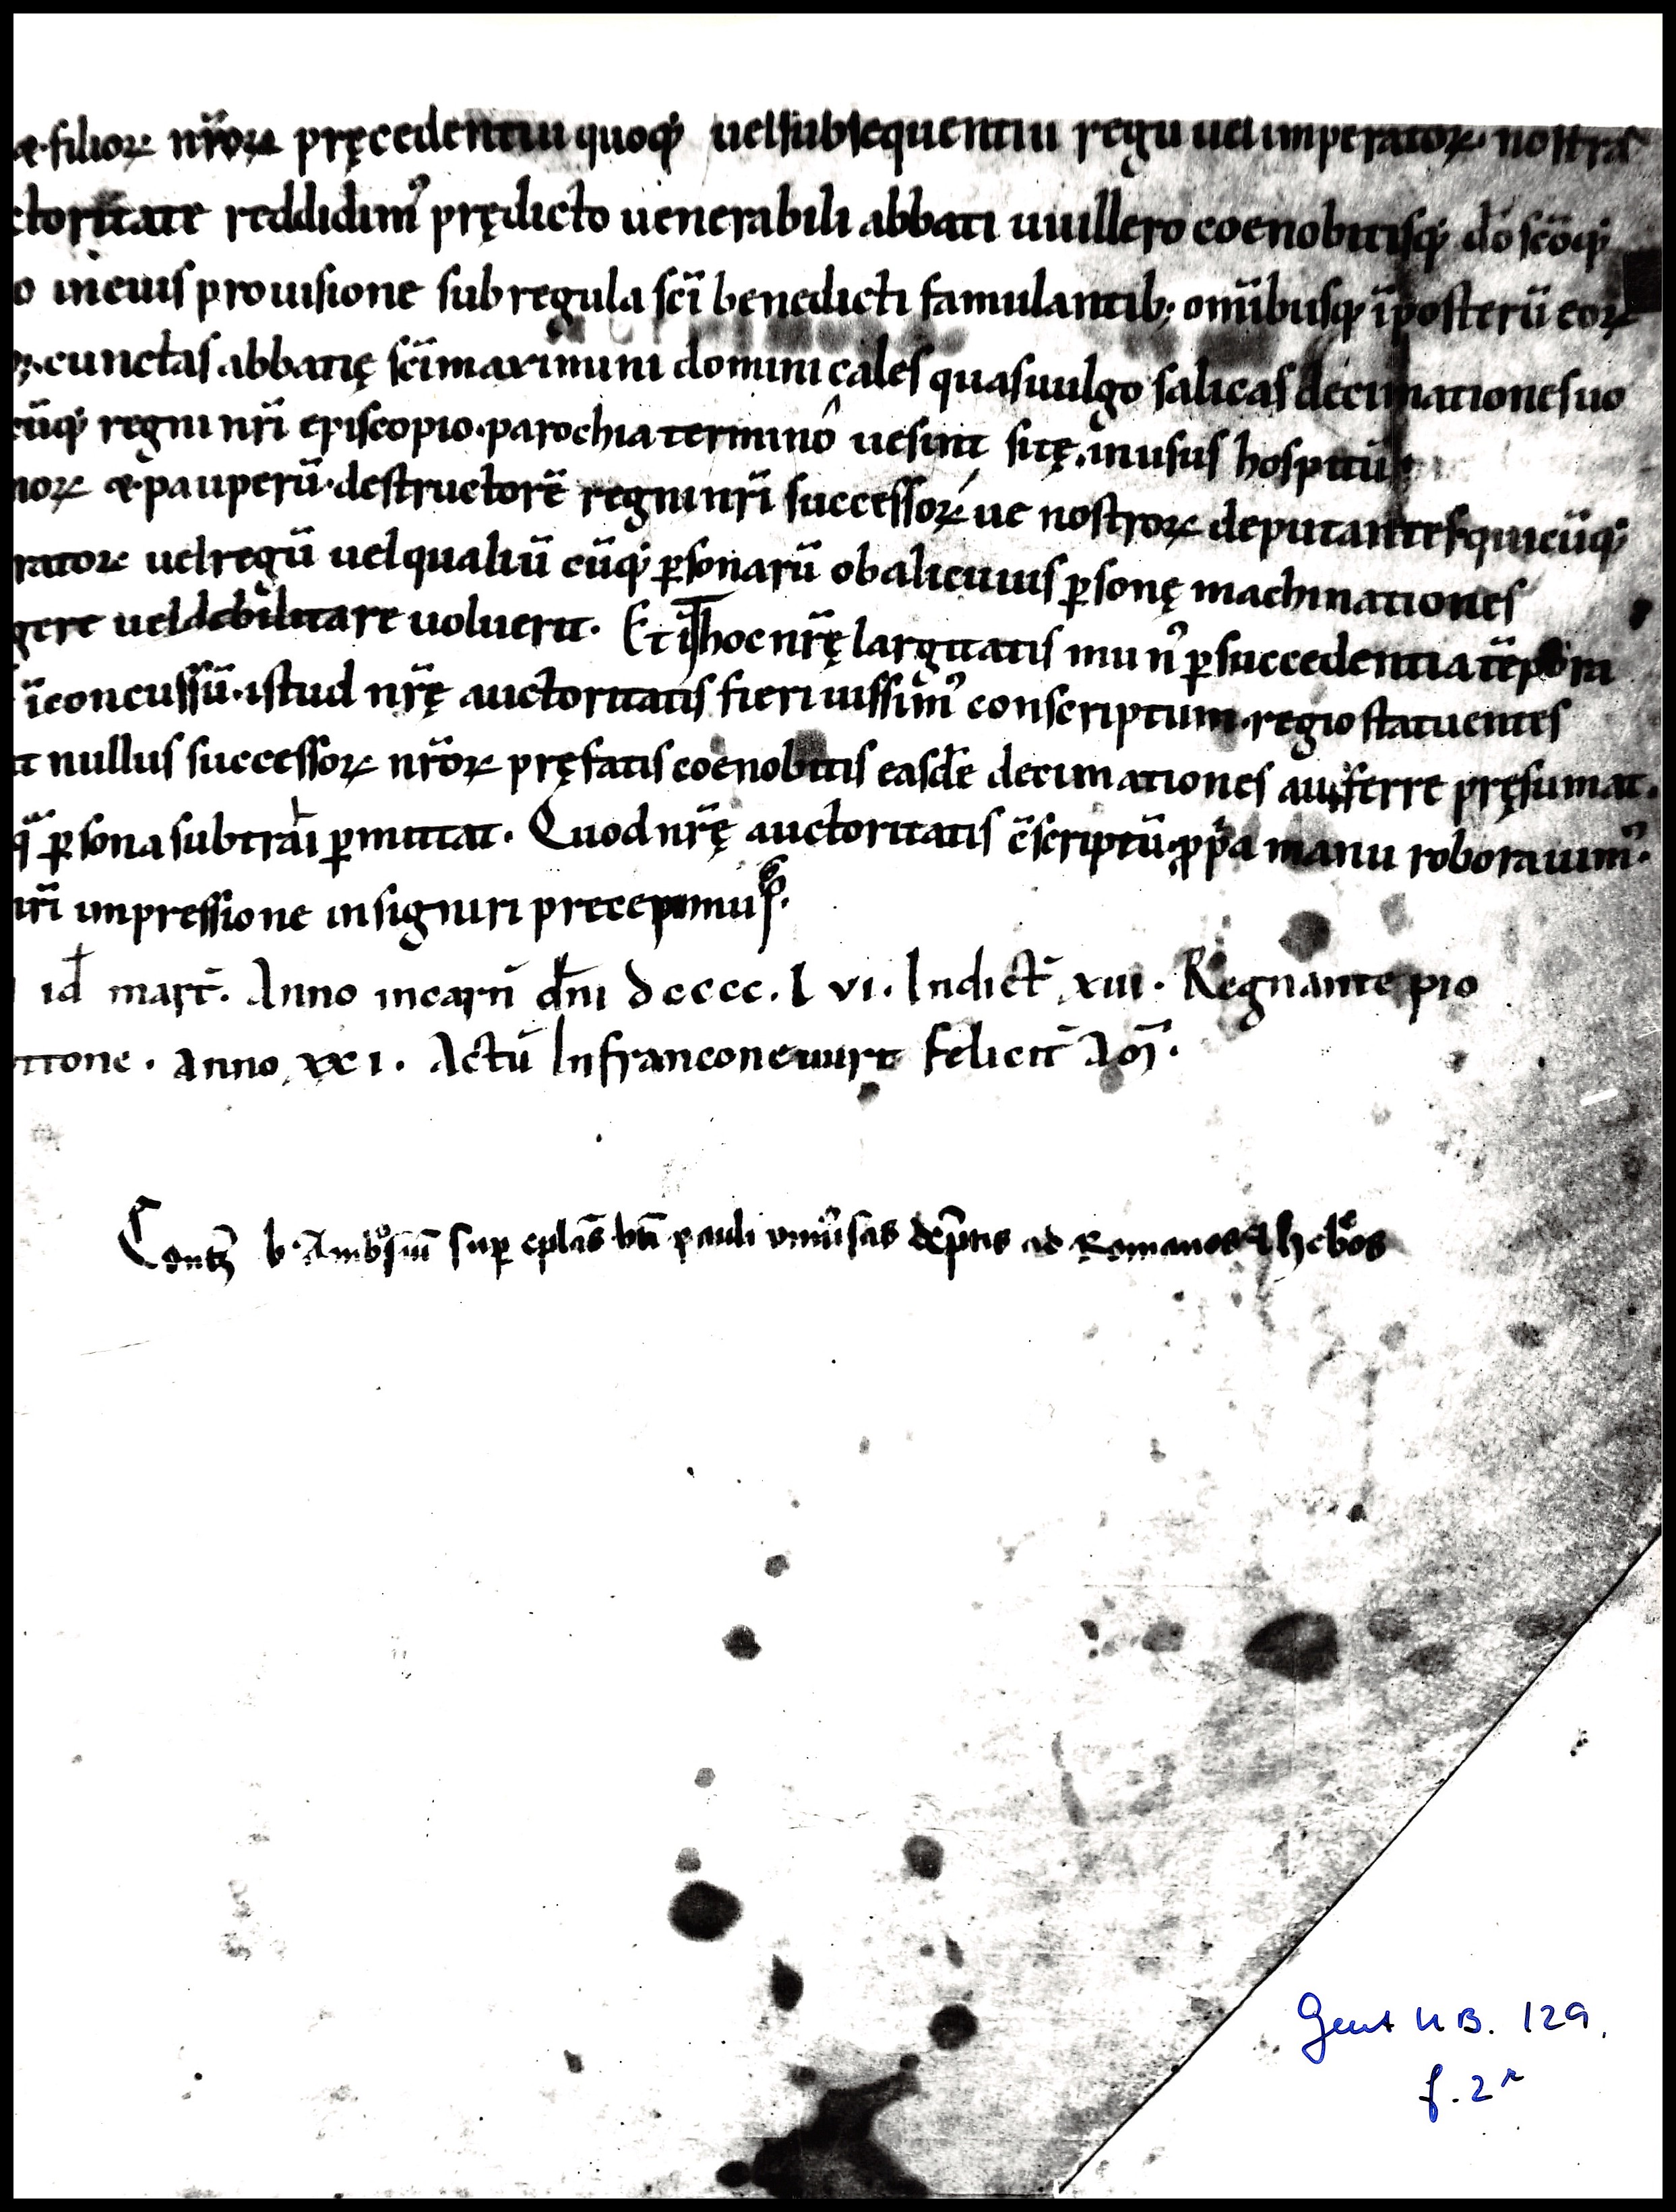 ⁊·filioꝝ nr̄oꝝ pręcedentiū quoq; uel subsequentiū regū uel imperatoꝝ· nostra
ctoritate reddidim᾽ prędicto uenerabili abbati uuillero coenobitisq; dō sc̄oq;
o in cuius prouisione sub regula sc̄i benedicti famulantib; omībusq; ī posterū eoꝝ
;·cunctas abbatię sc̄i maximini dominicales quas uulgo salicas decimationes uo
cūq; regni nr̄i episcopio·parochia termino ue sint sitę·in usus hospitū
noꝝ ⁊·pauperū·destructorē regni nr̄i successoꝝ ue nostroꝝ deputantes quicūq;
ratoꝝ uel regū uel qualiū cūq; ꝑsonarū ob alicuius ꝑsonę machinationes
gere uel debilitare uoluerit. Et hoc nr̄ę largitatis mun᾽ ꝑ succedentia tēpora
īconcussū·istud nr̄ę auctoritatis fieri iussim᾽ conscriptum·regio statuentes
t nullus successoꝝ nr̄oꝝ pręfatis coenobitis easdē decimationes auferre pręsumat.
ꝑsona subtrahi ꝑmittat. Quod nr̄ę auctoritatis c̄scriptū·ꝓpa manu roborauim᾽.
nr̄i impressione insigniri precepimus.
id̄ mart̄. Anno incarn̄ dn̄i dcccc.lvi. Indict̄ xiii. Regnante pio
ttone. anno xxi. Actū In franconeuurt felicit̄ Am̄.
Contꝫ b. Ambᵒsiū suꝑ eplās btī pauli vniūsas dēptis ad Romanos ⁊ hebᵉos
Gent UB. 129.
f. 2r